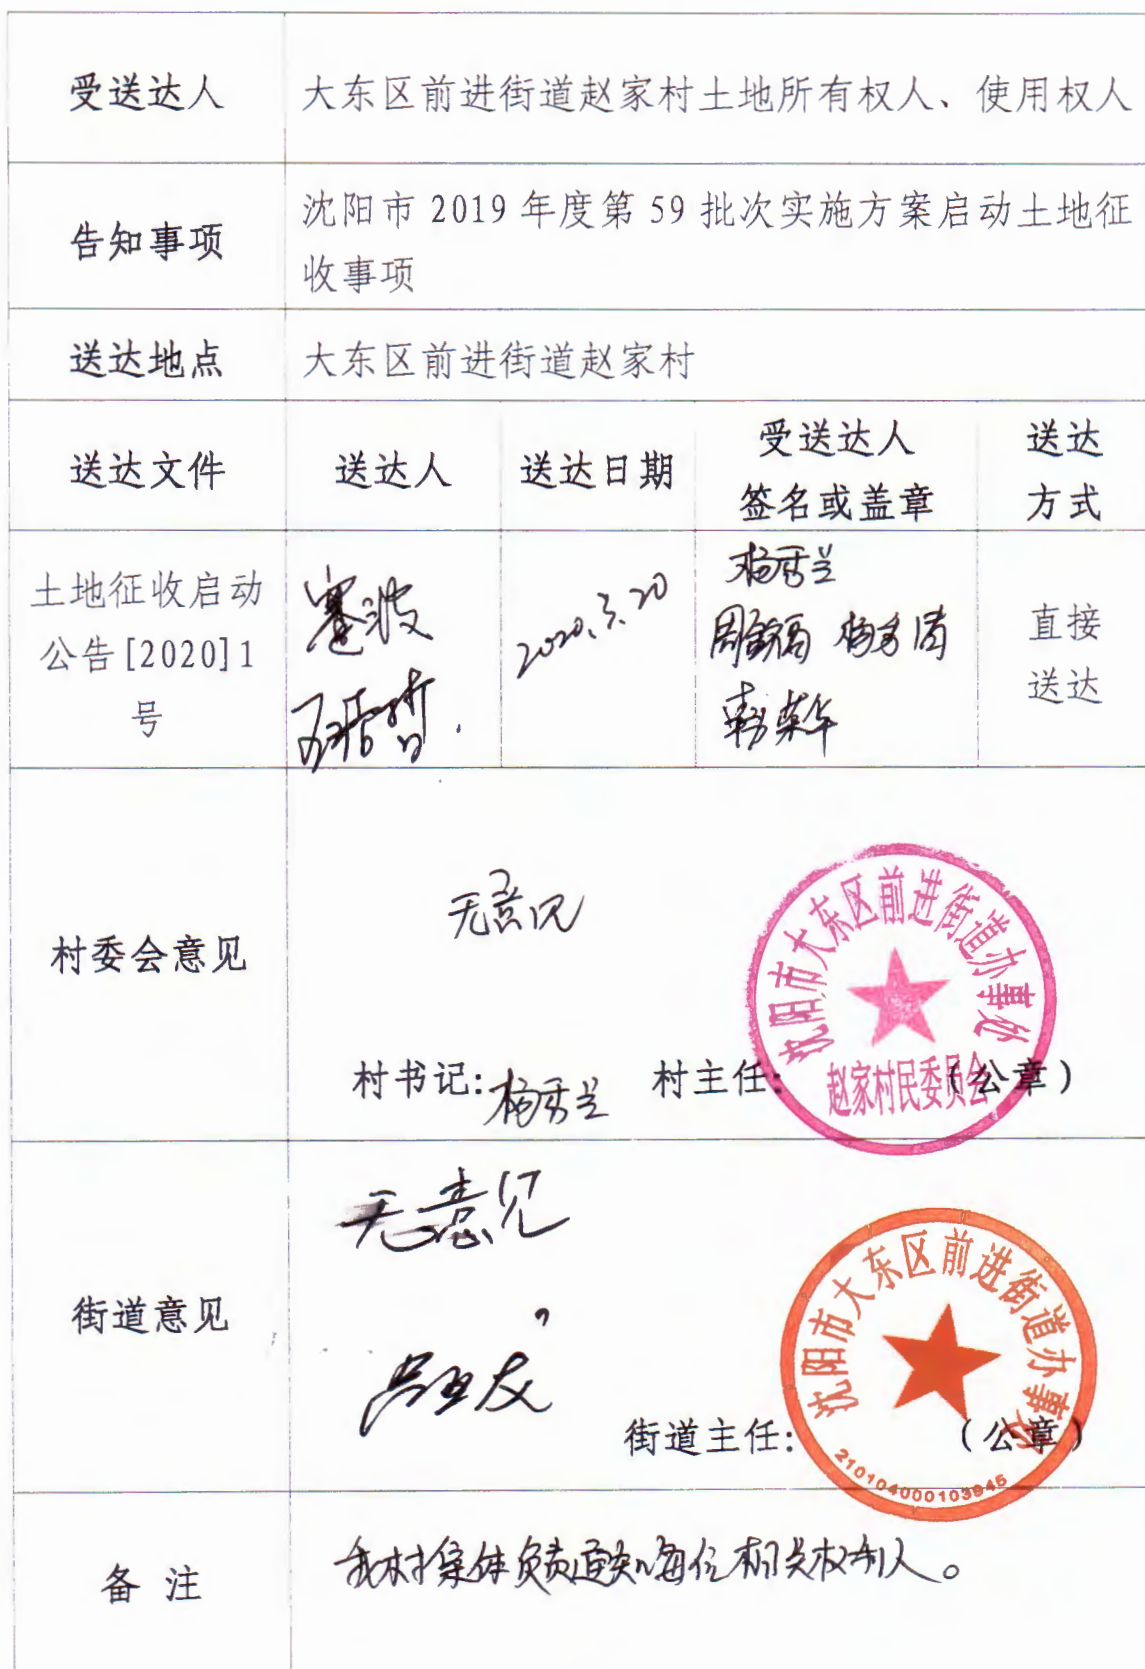 受送达人
大东区前进街道赵家村土地所有权人、使用权人
告知事项
沈阳市 2019 年度第 59 批次实施方案启动土地征
收事项
送达地点
大东区前进街道赵家村
送达文件
送达人
送达日期
受送达人
签名或盖章
送达
方式
土地征收启动
公告[2020]1
号
2020.3.20
杨秀兰
直接
送达
村委会意见
无意见
村书记:杨秀兰
村主任:
(公章)
沈阳市大东区前进街道办事处
赵家村民委员会
街道意见
无意见
街道主任:
(公章)
沈阳市大东区前进街道办事处
210104000103845
备 注
我村集体负责通知每位相关权利人。